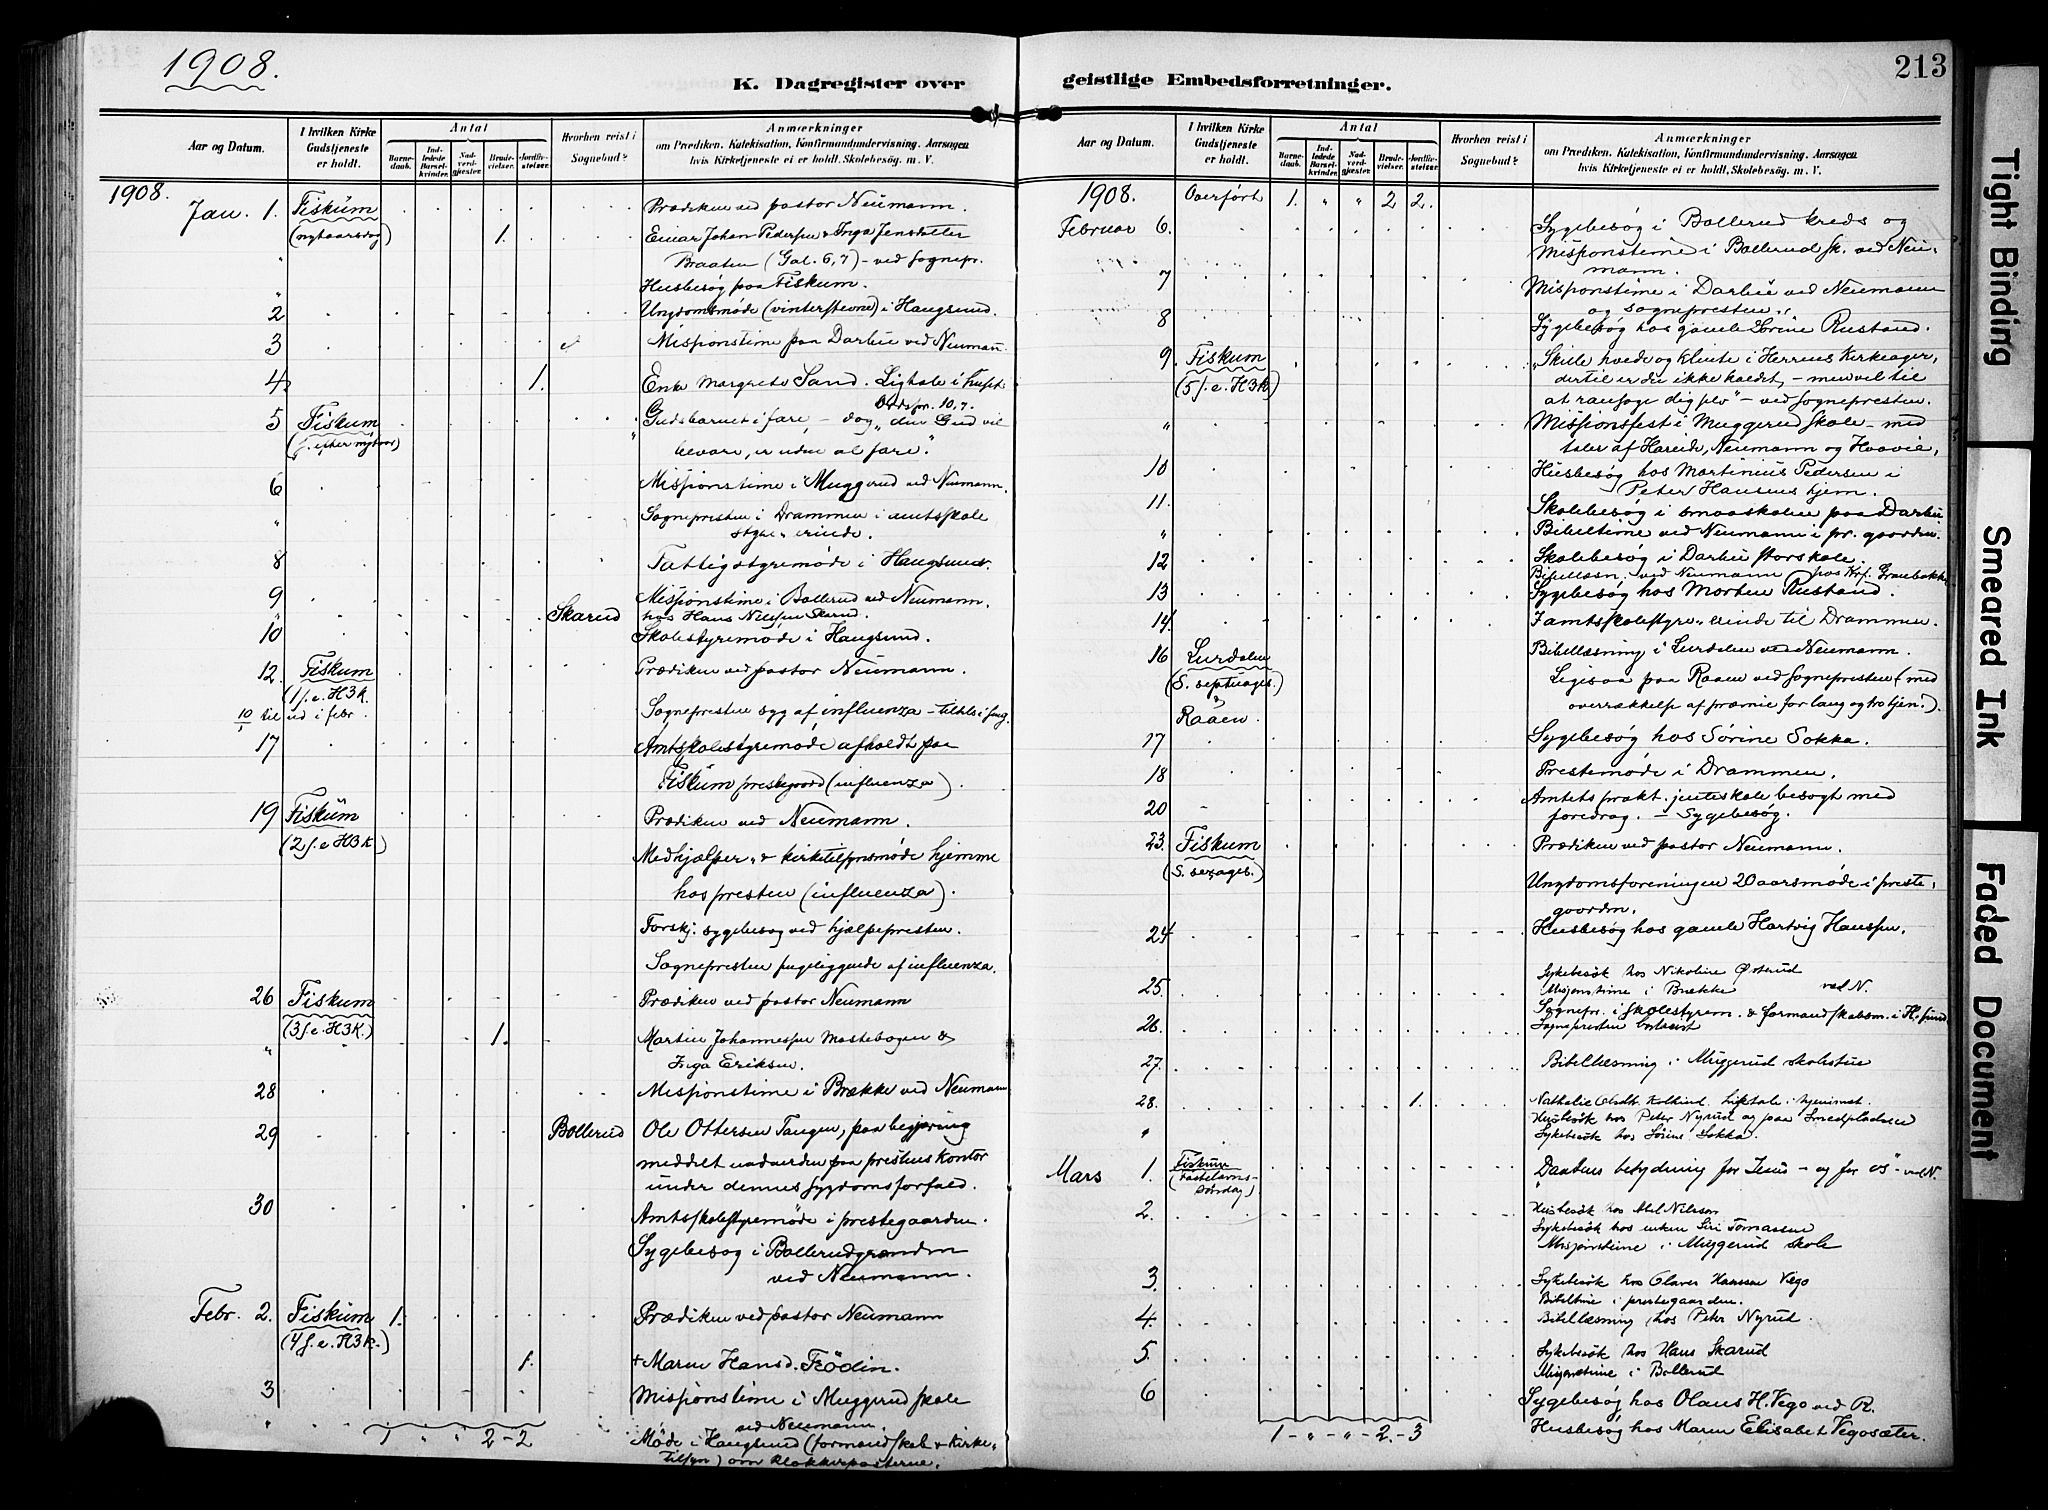 1908.
K. Dagregister over
Aar og Datum.
I hvilken Kirke Gudstjeneste er holdt.
Antal
Barnedaab.
Indledede Barselkvinder.
Nadverdgjæster.
Brudevielser.
Jordfæstelser.
Hvorhen reist i Sognebud?
Anmærkninger
om Prædiken, Katekisation, Konfirmandundervisning, Aarsagen
hvis Kirketjeneste ei er holdt, Skolebesög m. V.
1908.
Jan. 1. Fiskum Prædiken ved pastor Neumann.
(nytaarsdag) 1. Einar Johan Pedersen & Inga Jensdatter
" Braaten (Gal. 6,7) – ved sognepr.
" Husbesøg paa Fiskum.
2 Ungdomsmøde (vinterstevne) i Haugsund.
3 Missionstime paa Darbu ved Neumann
4 1. Enke Margrete Sand. Ligtale i huset
Ordspr. 10,7.
5 Fiskum Gudsbarnet i fare – dog "den Gud vil
(s. efter nytaar) bevare, er uden al fare."
6 Missionstime i Muggerud ved Neumann.
" Sognepresten i Drammen i amtsskole
styre-erinde.
8 Fattigstyremøde i Haugsund.
9 Missionstime i Bollerud ved Neumann.
" Skarud hos Hans Nilssen Skarud.
10 Skolestyremøde i Haugsund.
12. Fiskum Prædiken ved pastor Neumann.
(1 s. e. H3K.
10/1 til ud i febr. Sognepresten syg af influenza – tildels i seng.
17 Amtskolestyremøde afholdt paa
Fiskum prestegaard (influenza).
19 Fiskum Prædiken ved Neumann.
(2 s. e H3K.)
Medhjælper- & kirketilsynsmøde hjemme
hos presten (influenza).
Forskj. sygebesøg ved hjælpepresten.
Sognepresten sengeliggende af influenza.
26 Fiskum Prædiken ved pastor Neumann
(3 s. e. H3K.)
" 1. Martin Johannessen Mastebogen &
Inga Eriksen.
28 Missionstime i Brække ved Neumann
29 Bollerud Ole Ottersen Tangen, paa begjæring
meddelt nadverden paa prestens kontor
under dennes sygdomsforfald.
30 Amtsskolestyremøde i prestegaarden.
Sygebesøg i Bollerudgrænden
ved Neumann.
Febr. 2. Fiskum 1. Prædiken ved pastor Neumann
(4 s. e. H3K.)
1. + Maren Hansd. Frödin.
3 Missionstime i Muggerud skole
ved Neumann.
1 " " 2 – 2 Møde i Haugsund (formandskab & kirke-
tilsyn) om klokkerposterne.
213
geistlige Embedsforretninger.
Aar og Datum.
I hvilken Kirke Gudstjeneste er holdt.
Antal
Barnedaab.
Indledede Barselkvinder.
Nadverdgjæster.
Brudevielser.
Jordfæstelser.
Hvorhen reist i Sognebud?
Anmærkninger
om Prædiken, Katekisation, Konfirmandundervisning, Aarsagen
hvis Kirketjeneste ei er holdt, Skolebesög m. V.
1908. Overført 1. " " 2 2.
Februar 6. Sygebesøg i Bollerud kreds og
Missionstime i Bollerud sk. ved Neu-
mann.
7 Missionstime i Darbu ved Neumann
og sognepresten.
8 Sygebesøg hos gamle Sørine Rustand.
9. Fiskum "Skille hvede og klinte i Herrens kirkeager,
(5 s. e. H3K) dertil er du ikke kaldet, – men vel til
at ransage dig selv" – ved sognepresten.
" Missionsfest i Muggerud skole – med
taler af Hareide, Neumann og
10 Husbesøg hos Martinius Pedersen i
Peter Hansens hjem.
11. Skolebesøg i smaaskolen paa Darbu
" Bibeltime ved Neumann i pr. gaarden.
12 Skolebesøg i Darbu storskole.
Bibellæsn. ved Neumann hos
13. Sygebesøg hos Morten Rustand.
14. I amtsskolestyre-erinde til Drammen.
16 Lurdalen Bibellæsning i Lurdalen ved Neumann.
(S. septuages.) Ligesaa paa Raaen ved sognepresten (med
Raaen overrækkelse af præmie for lang og tro tjen.).
17 Sygebesøg hos Sørine Sokka.
18 Prestemøde i Drammen.
20 Amtets prakt. jenteskole besøgt med
foredrag. – Sygebesøg.
23. Fiskum Prædiken ved pastor Neumann.
(S. sexages.)
Ungdomsforeningen 20 aarsmøde i preste-
gaarden.
24 Husbesøg hos gamle Hartvig Hanssen.
25. Sykebesøk hos Nikoline Østerud
Misjonstime i Brække ved N.
26. Sognepr. i skolestyrem. & formandskabsm. i H.sund
Sognepresten
27. Bibellæsning i Muggerud skolestue
28. 1. Nathalie Olsdtr. Kolbind. Liktale i hjemmet.
Husbesøk hos Peter Nyrud og paa Smedpladsen
" Sykebesøk hos Sørine Sokka.
Mars 1. Fiskum "Daabens betydning for Jesus – og for os" – ved N.
(Fastelavns-
søndag)
2. Husbesøk hos Abel Nilsson
Sykebesøk hos enken Siri Tomassen
Misjonstime i Muggerud skole
3. Sykebesøk hos Olaves Hanssen Vego
Bibeltime i prestegaarden.
4. Bibellæsning hos Peter Nyrud.
5. Sykebesøk hos Hans Skarud
Misjonstime i Bollerud
6 Sygebesøg hos Olaus H. Vego ved R.
1 – " – " – 2. – 3 Husbesøg hos Maren Elisabet Vegosæter.
Tight Binding
Smeared Ink
Faded Document